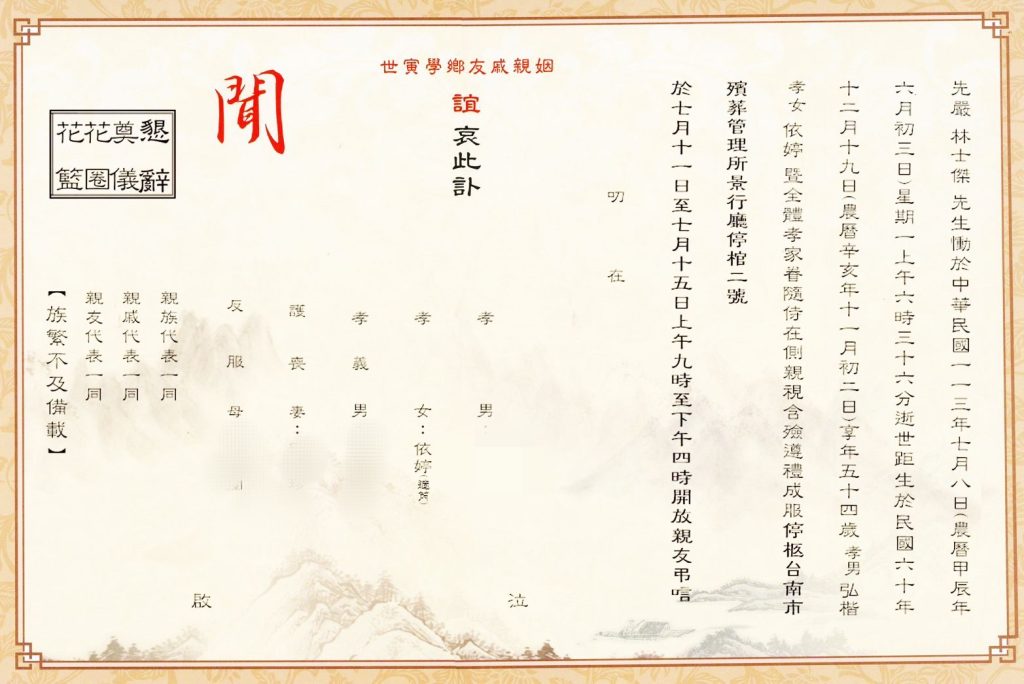 先嚴 林士傑 先生慟於中華民國一一三年七月八日(農曆甲辰年
六月初三日)星期一上午六時三十六分逝世距生於民國六十年
十二月十九日(農曆辛亥年十一月初二日)享年五十四歲 孝男 弘楷
孝女 依婷 暨全體孝家眷隨侍在側親視含殮遵禮成服停柩台南市
殯葬管理所景行廳停棺二號
於七月十一日至七月十五日上午九時至下午四時開放親友弔唁
叨在
姻親戚友鄉學寅世
誼 哀此訃
聞
孝男
孝女：依婷(適)
孝義男
護喪妻：
反服母
泣
啟
親族代表一同
親戚代表一同
親友代表一同
【族繁不及備載】
懇辭
奠儀
花圈
花籃